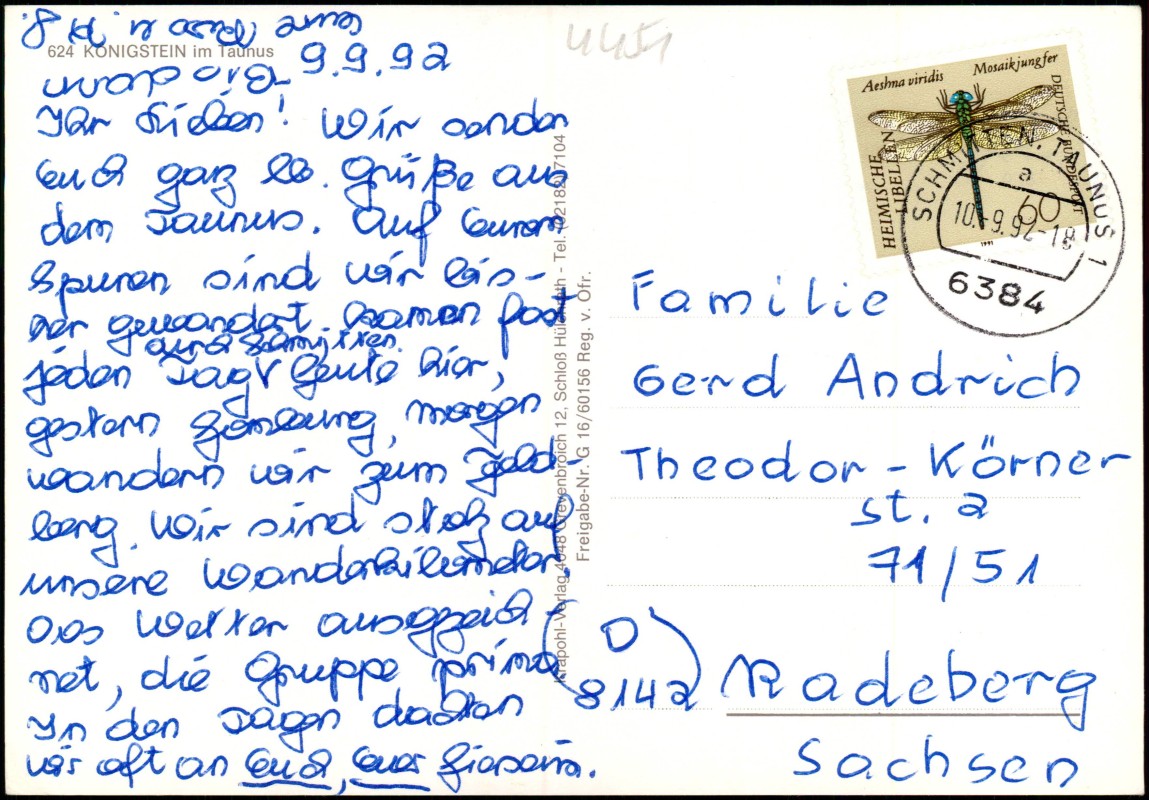 624 KÖNIGSTEIN im Taunus
9.9.92
Ihr Lieben! Wir senden
Euch ganz lb. Grüße aus
dem Taunus. Auf Euren
Spuren sind wir bis-
her gewandert, kamen fast
jeden Tag
heute hier,
gestern Homburg, morgen
wandern wir zum Feld-
berg. Wir sind stolz auf
unsere Wanderkilometer.
Das Wetter ausgezeich-
net, die Gruppe prima
In den Tagen dachten
wir oft an Euch, Euer Hiersein.
Eure
4451
Krapohl-Verlag, 4048 Grevenbroich 12, Schloß
Freigabe-Nr. G 16/60156 Reg. v. Ofr.
Aeshna viridis Mosaikjungfer
HEIMISCHE
LIBELLEN
DEUTSCHE BUNDESPOST
60
SCHMITTEN, TAUNUS 1
a
10.-9.92-18
6384
Familie
Gerd Andrich
Theodor-Körner
st. 2
71/51
(D)
8142 Radeberg
Sachsen